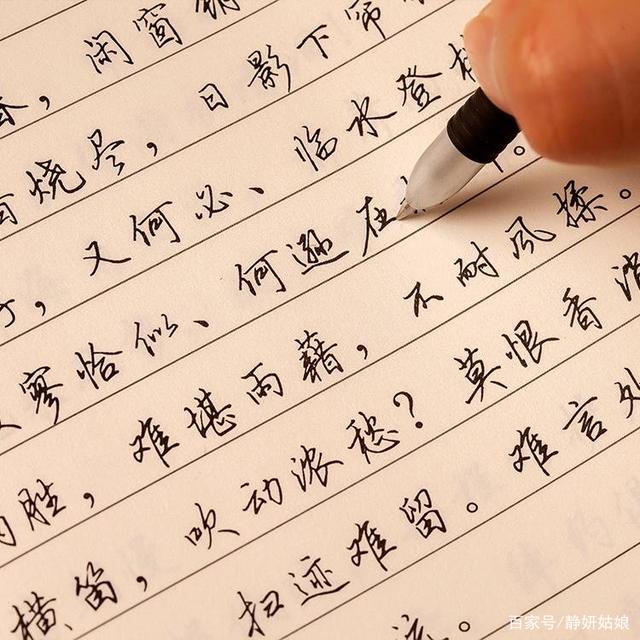 ，闲窗
烧尽，日影下帘
，又何必、临水登
寥恰似、何逊在
胜，难堪雨藉，不耐风揉。
横笛，吹动浓愁？莫恨香消
扫迹难留。难言处
流。
百家号/静妍姑娘